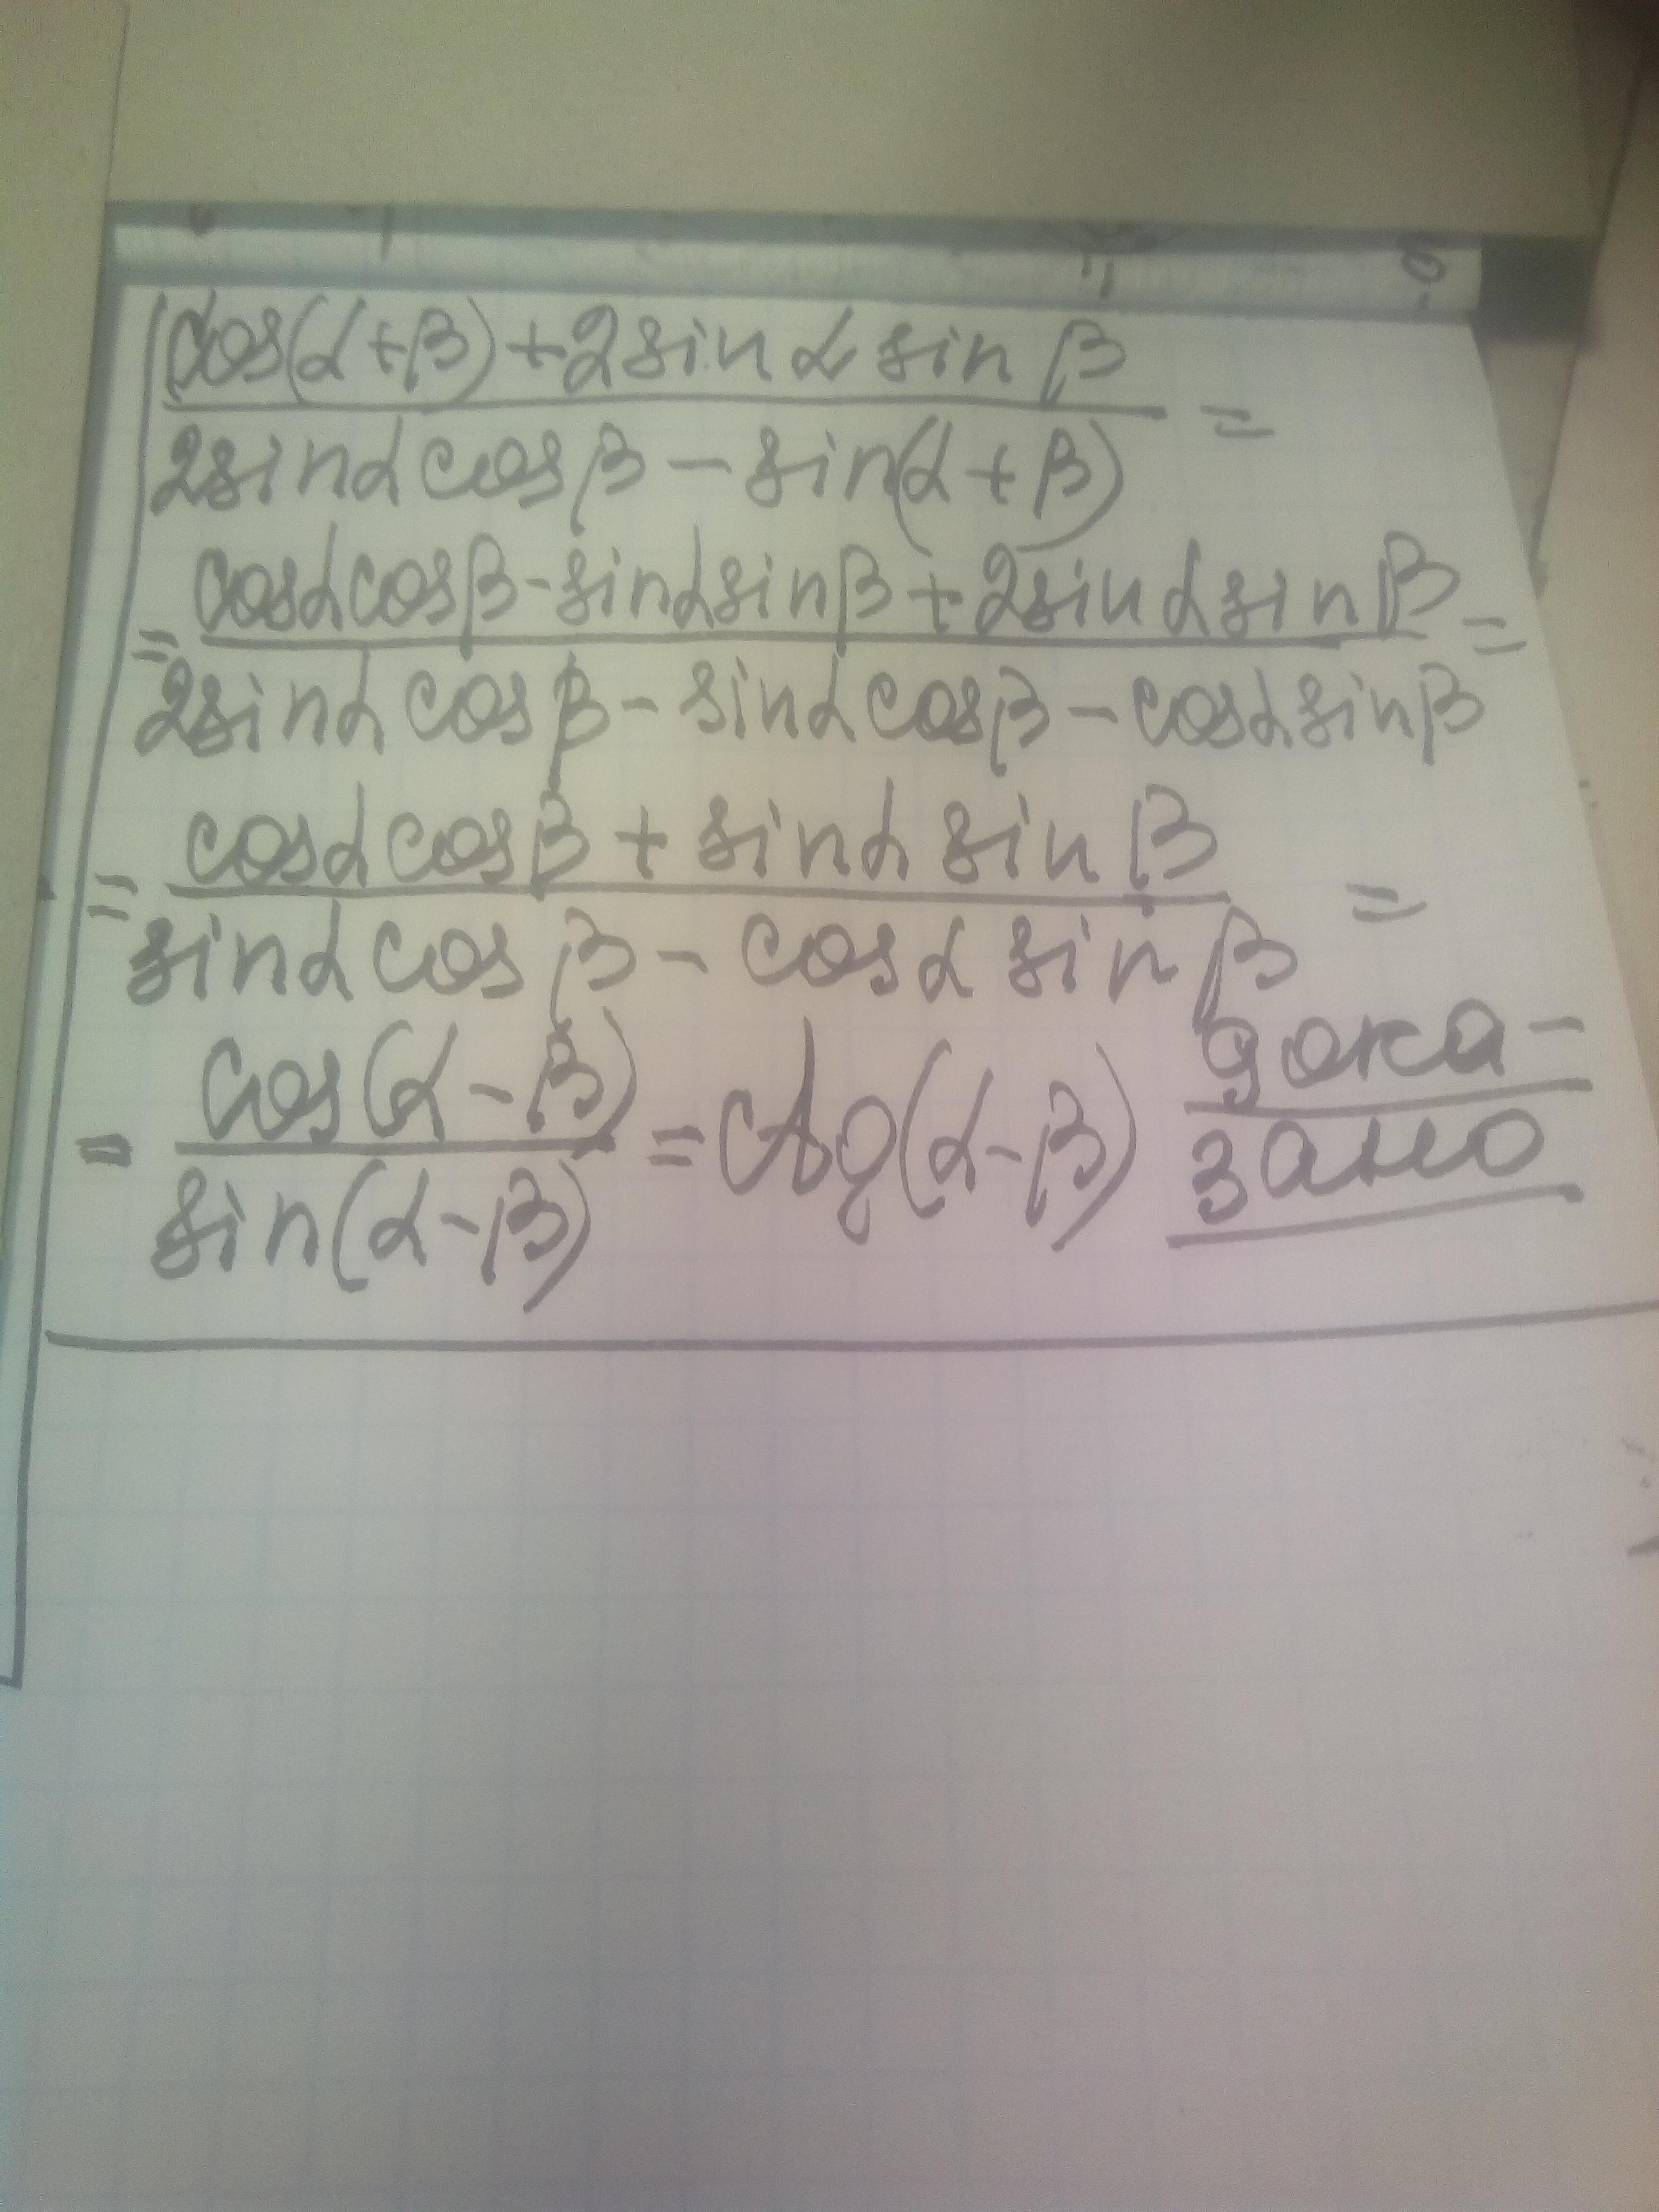 cos(α+β)+2sin α sin β
2sinα cosβ - sin(α+β) =
= cosαcosβ-sinαsinβ+2sinαsinβ =
2sinα cosβ - sinαcosβ - cosαsinβ
= cosαcosβ + sinα sin β =
sinα cos β - cosα sin β
= cos(α-β) = ctg(α-β) дока-
sin(α-β) зано